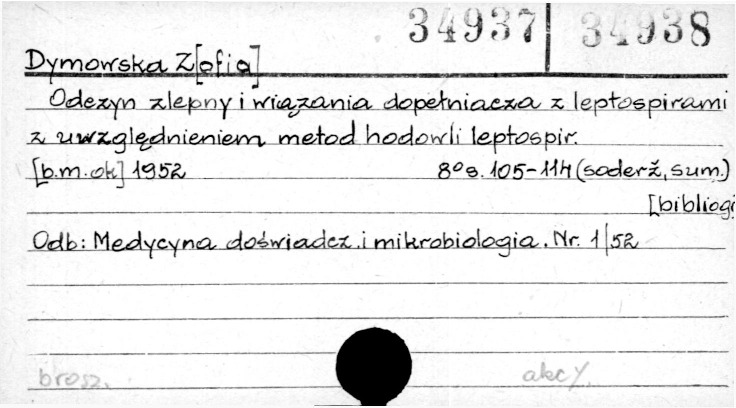 34937 34938
Dymowska Z[ofia]
Odczyn zlepny i wiązania dopełniacza z leptospirami
z uwzględnieniem metod hodowli leptospir.
[b.m.ok] 1952 8º s. 105-114 (soderž, sum.)
[bibliogr
Odb: Medycyna doświadcz. i mikrobiologia. Nr. 1/52
brosz. akc/.